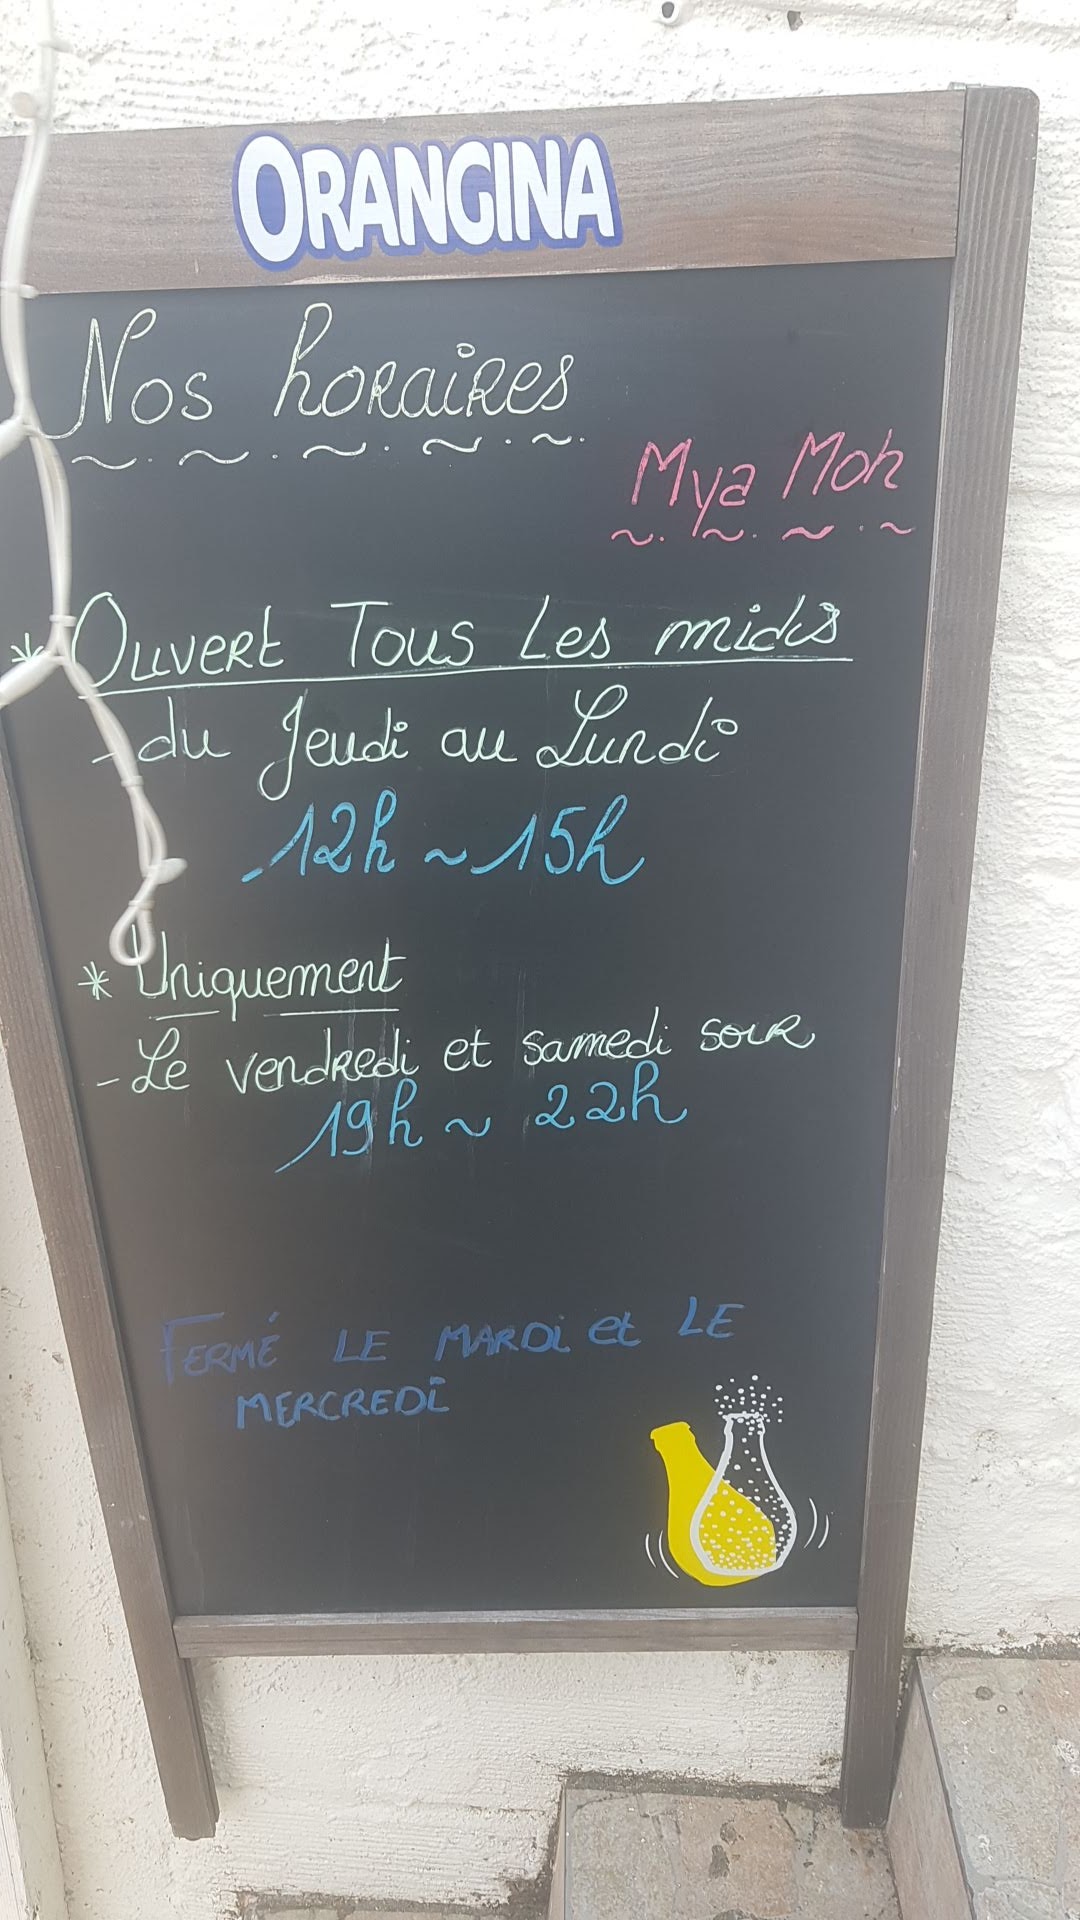 ORANGINA
Nos horaires
Mya Moh
* Ouvert Tous Les midis
- du Jeudi au Lundi
12h ~ 15h
* Uniquement
- Le vendredi et samedi soir
19h ~ 22h
FERMÉ LE MARDi et LE
MERCREDi